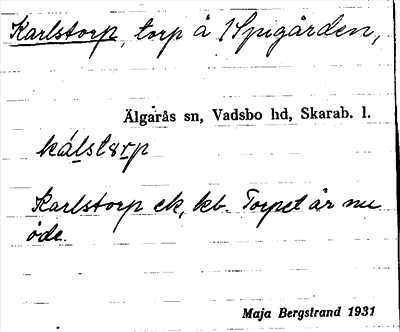 Karlstorp, torp å 1 Spigården,
Älgarås sn, Vadsbo hd, Skarab. l.
Karlstorp ek, kb. Torpet är nu
öde.
Maja Bergstrand 1931